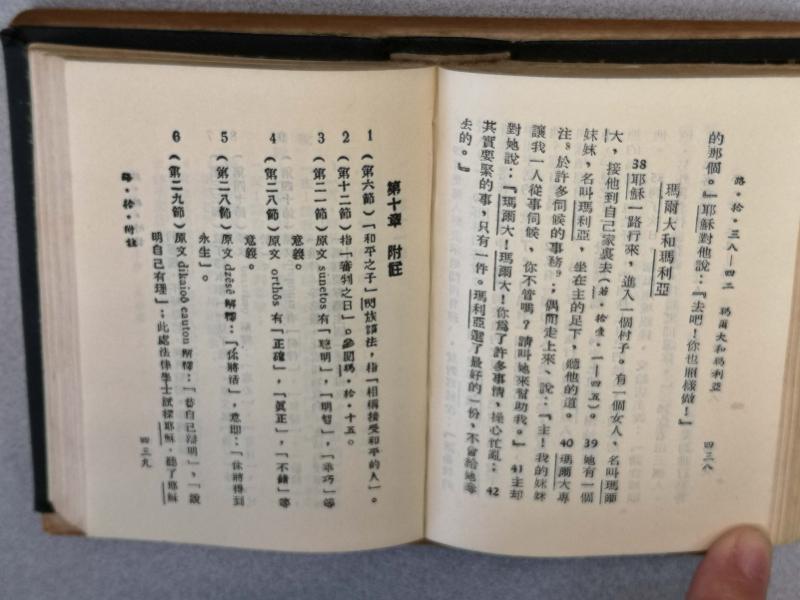 路·拾·三八—四二 瑪爾大和瑪利亞 四三八
的那個。』耶穌對他說：『去吧！你也照樣做！』
瑪爾大和瑪利亞
38 耶穌一路行來，進入一個村子。有一個女人，名叫瑪爾
大，接他到自己家裏去（若·拾壹·一—四五）。39 她有一個
妹妹，名叫瑪利亞，坐在主的足下，聽他的道。40 瑪爾大專
注8於許多伺候的事務9；偶而走上來，說：『主！我的妹妹
讓我一人從事伺候，你不管嗎？請叫她來幫助我。』41 主却
對她說：『瑪爾大！瑪爾大！你爲了許多事情，操心忙亂；42
其實要緊的事，只有一件。瑪利亞選了最好的一份，不會給她奪
去的。』
第十章 附註
1（第六節）「和平之子」閃族語法，指「相稱接受和平的人」。
2（第十二節）指「審判之日」。參閱瑪·拾·十五。
3（第二一節）原文 sunetos 有「聰明」，「明智」，「乖巧」等
意義。
4（第二八節）原文 orthôs 有「正確」，「眞正」，「不錯」等
意義。
5（第二八節）原文 dzêsê 解釋：「你將活」，意即：「你將得到
永生」。
6（第二九節）原文 dikaioô eauton 解釋：「替自己辯明」，「說
明自己有理」；此處法律學士試探耶穌，聽了耶穌
路·拾·附註 四三九